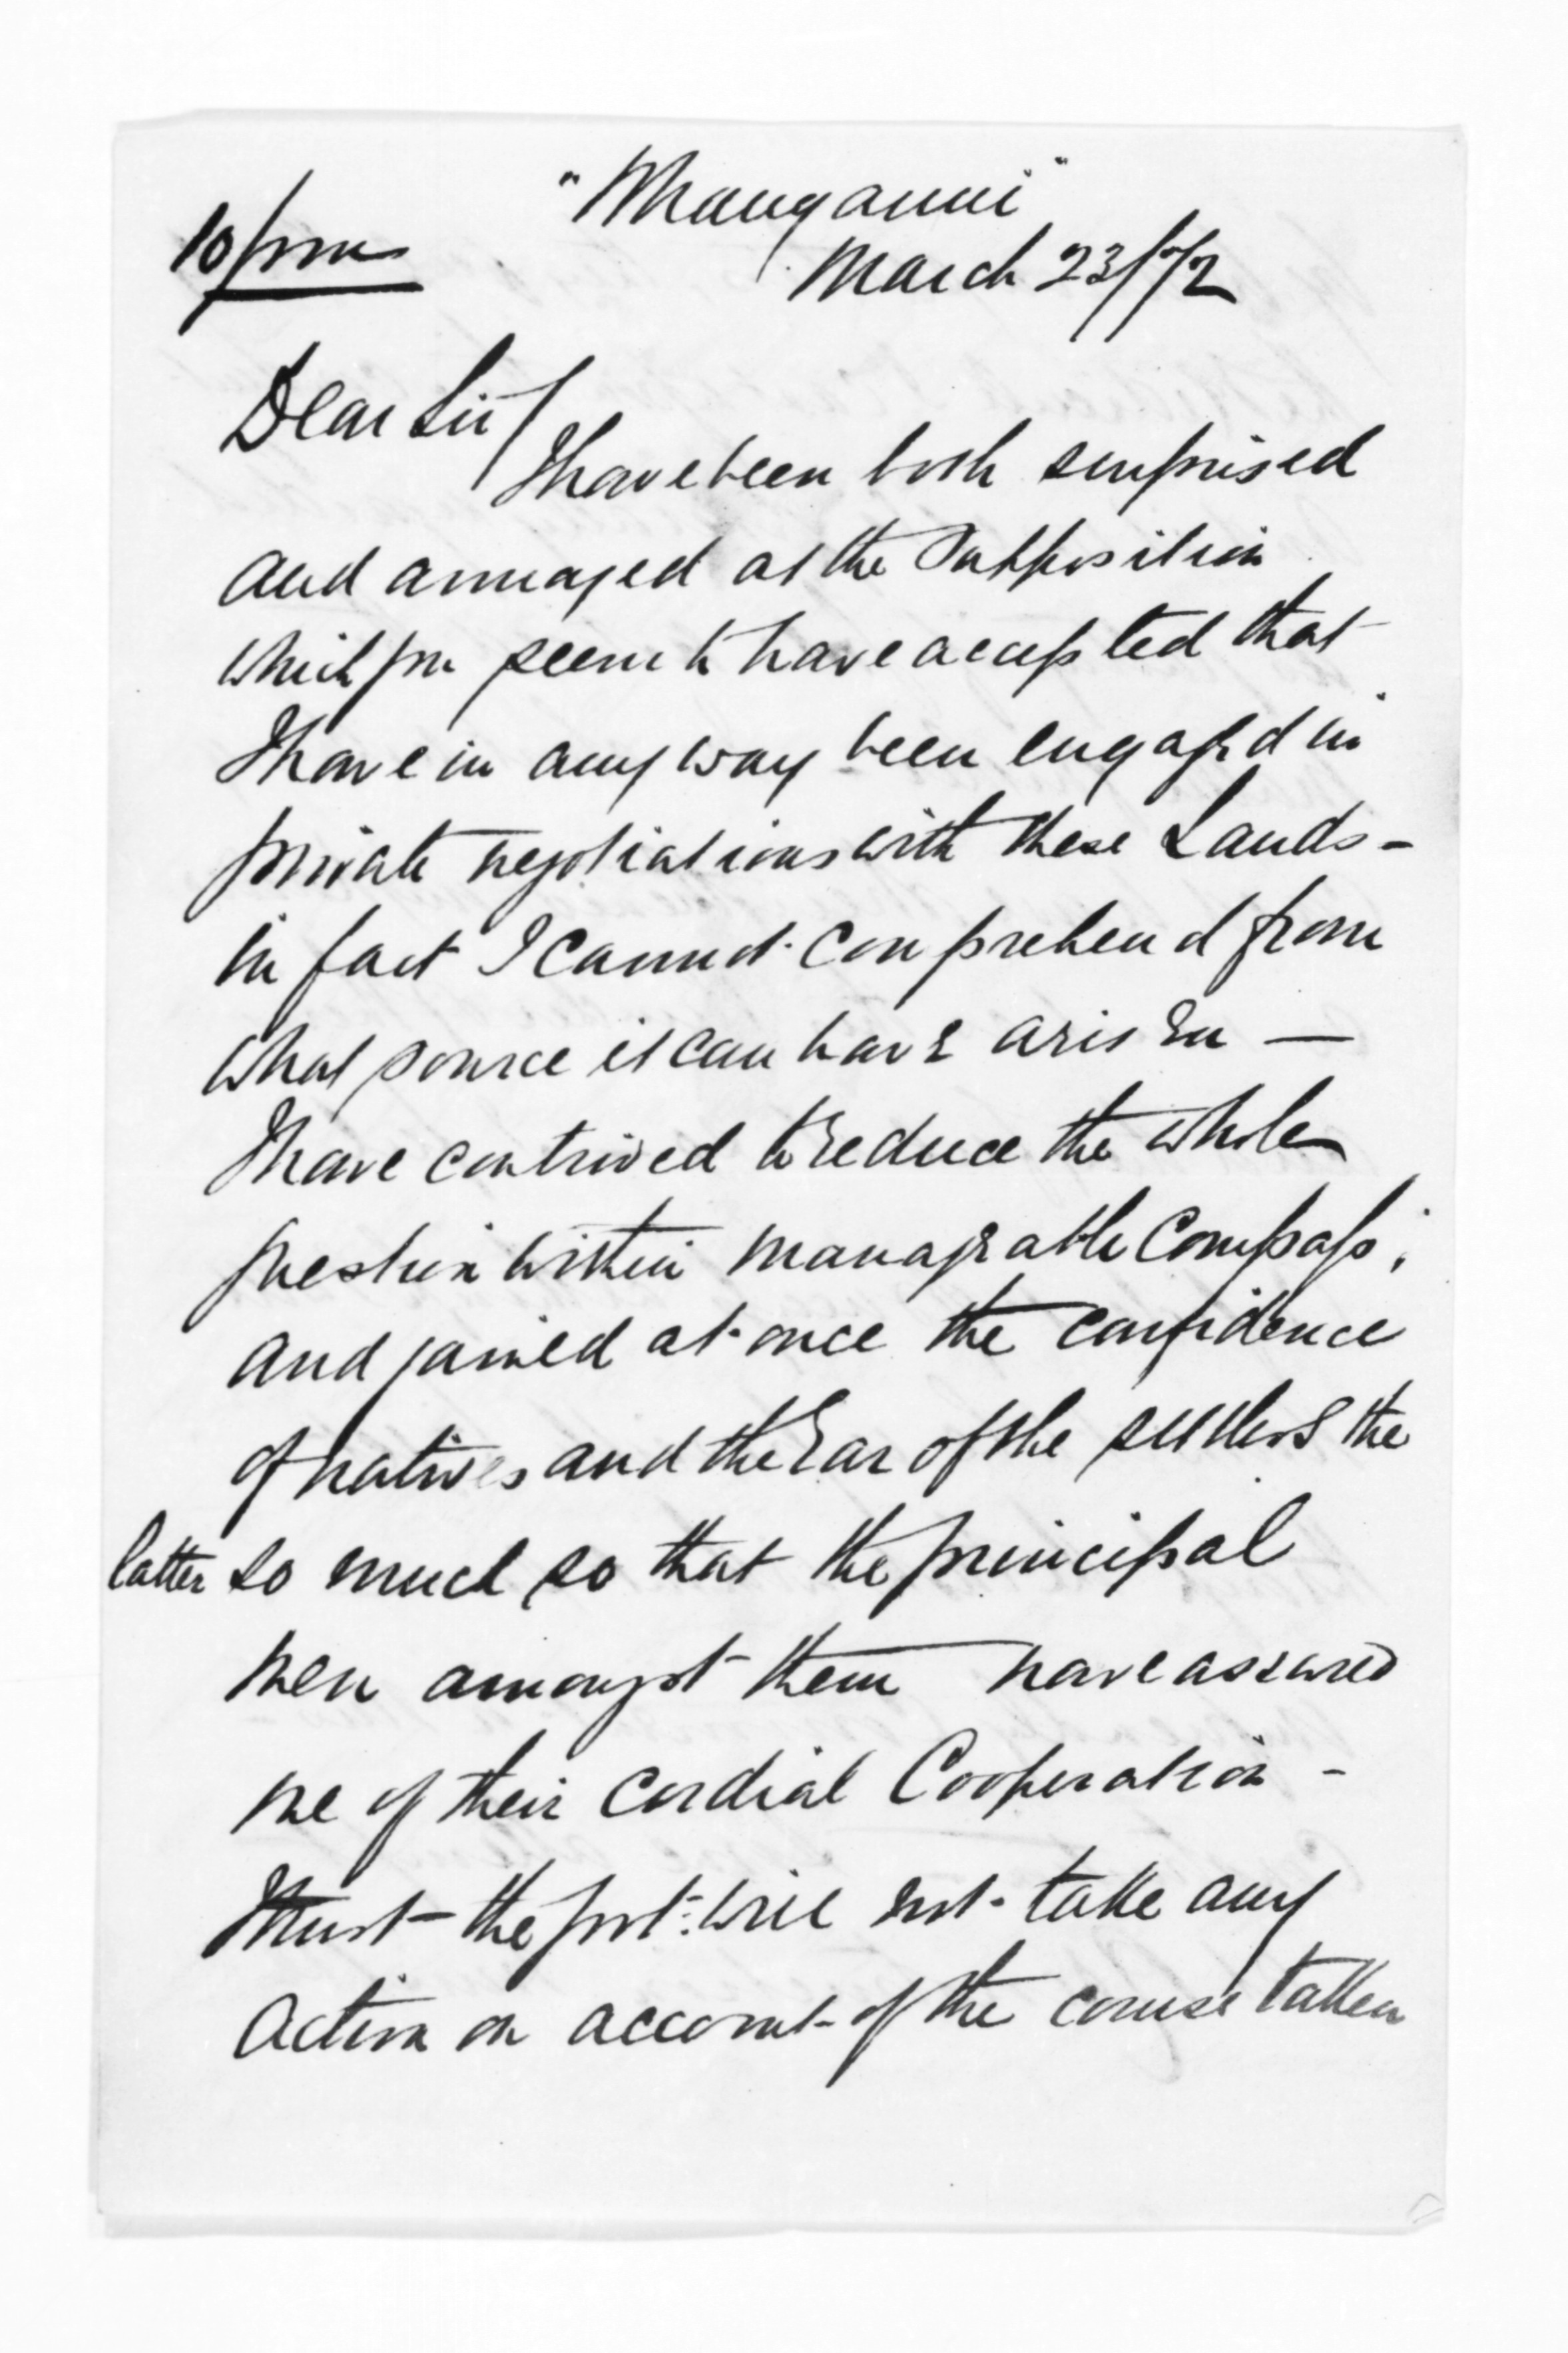 "Whanganui"
10/pm
March 23/72
Dear Sir/
I have been both surprised
and annoyed at the supposition
which you seem to have accepted that
I have in any way been engaged in
private negotiations with these Lands -
in fact I cannot comprehend from
what source it can have arisen —
I have contrived to reduce the whole
question within manageable compass;
and gained at once the confidence
of natives and the Ear of the settlers the
latter so much so that the principal
men amongst them have assured
me of their cordial Cooperation -
I trust the govt: will not take any
action on account of the course taken